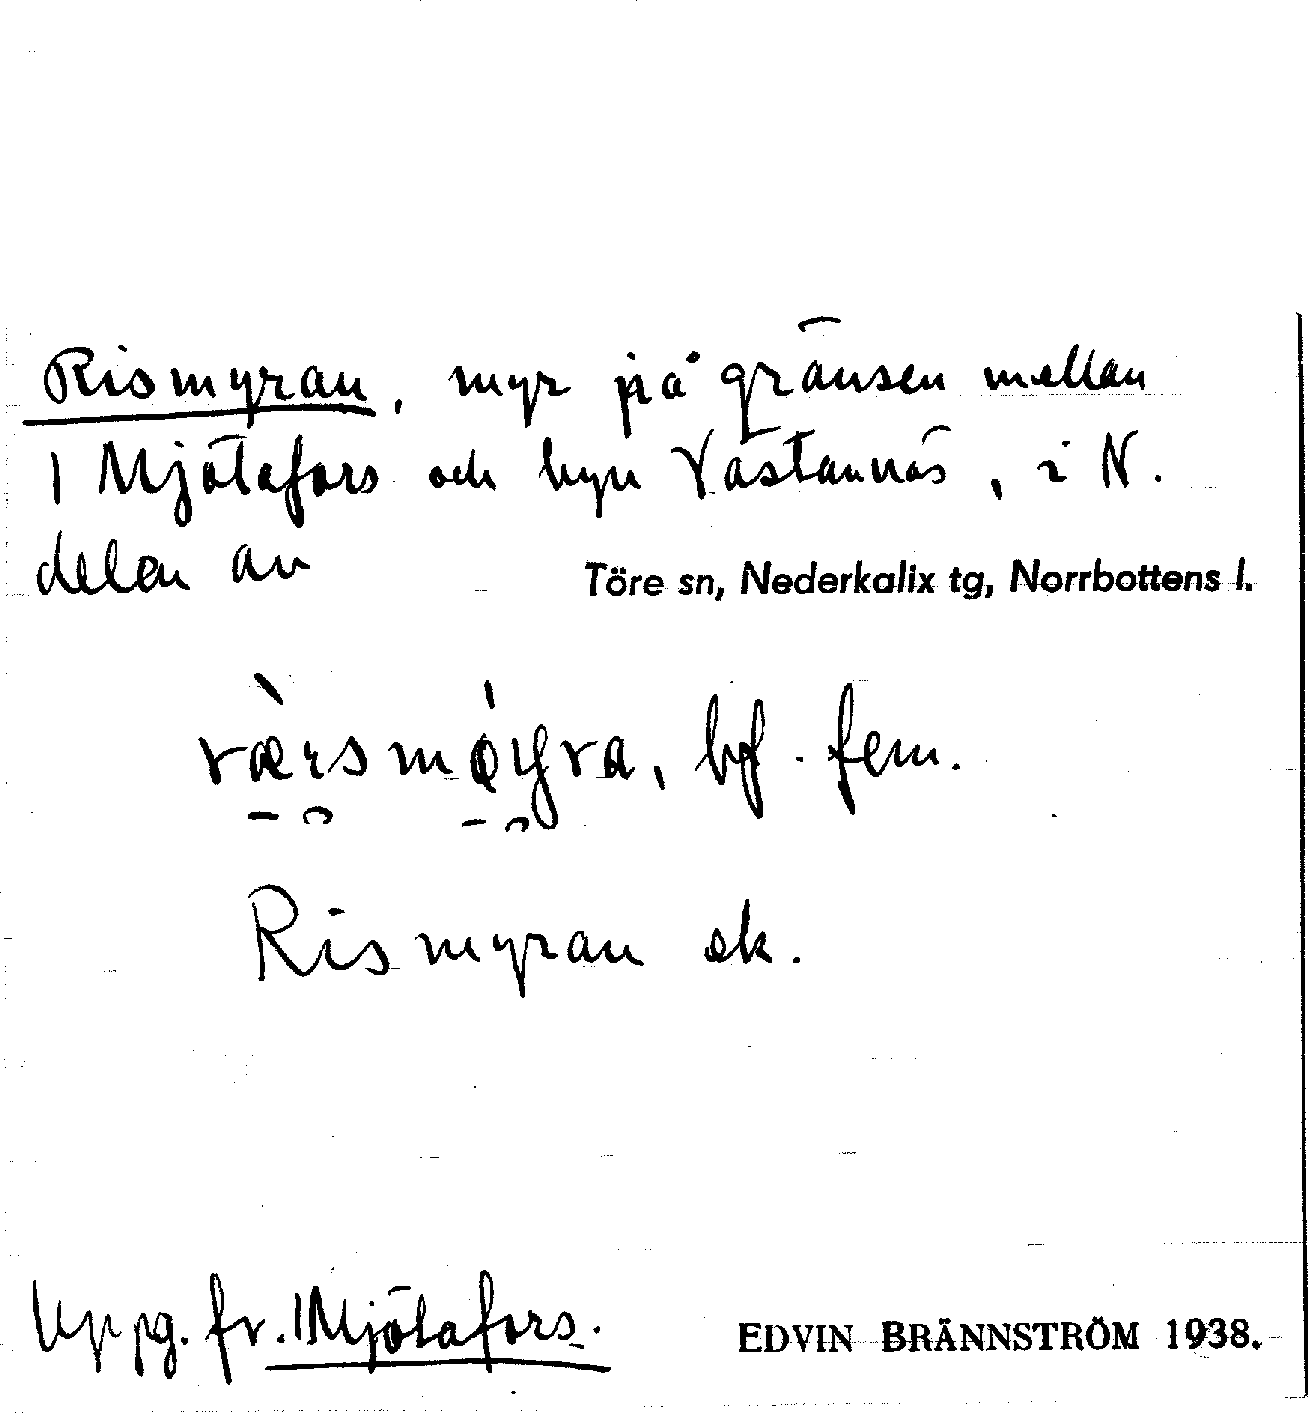 Rismyran, myr på gränsen mellan
1 Mjötafors och byn Västannäs, i N.
delen av Töre sn, Nederkalix tg, Norrbottens l.
bf. fem.
Rismyran ek.
Uppg. fr. 1 Mjötafors.
EDVIN BRÄNNSTRÖM 1938.